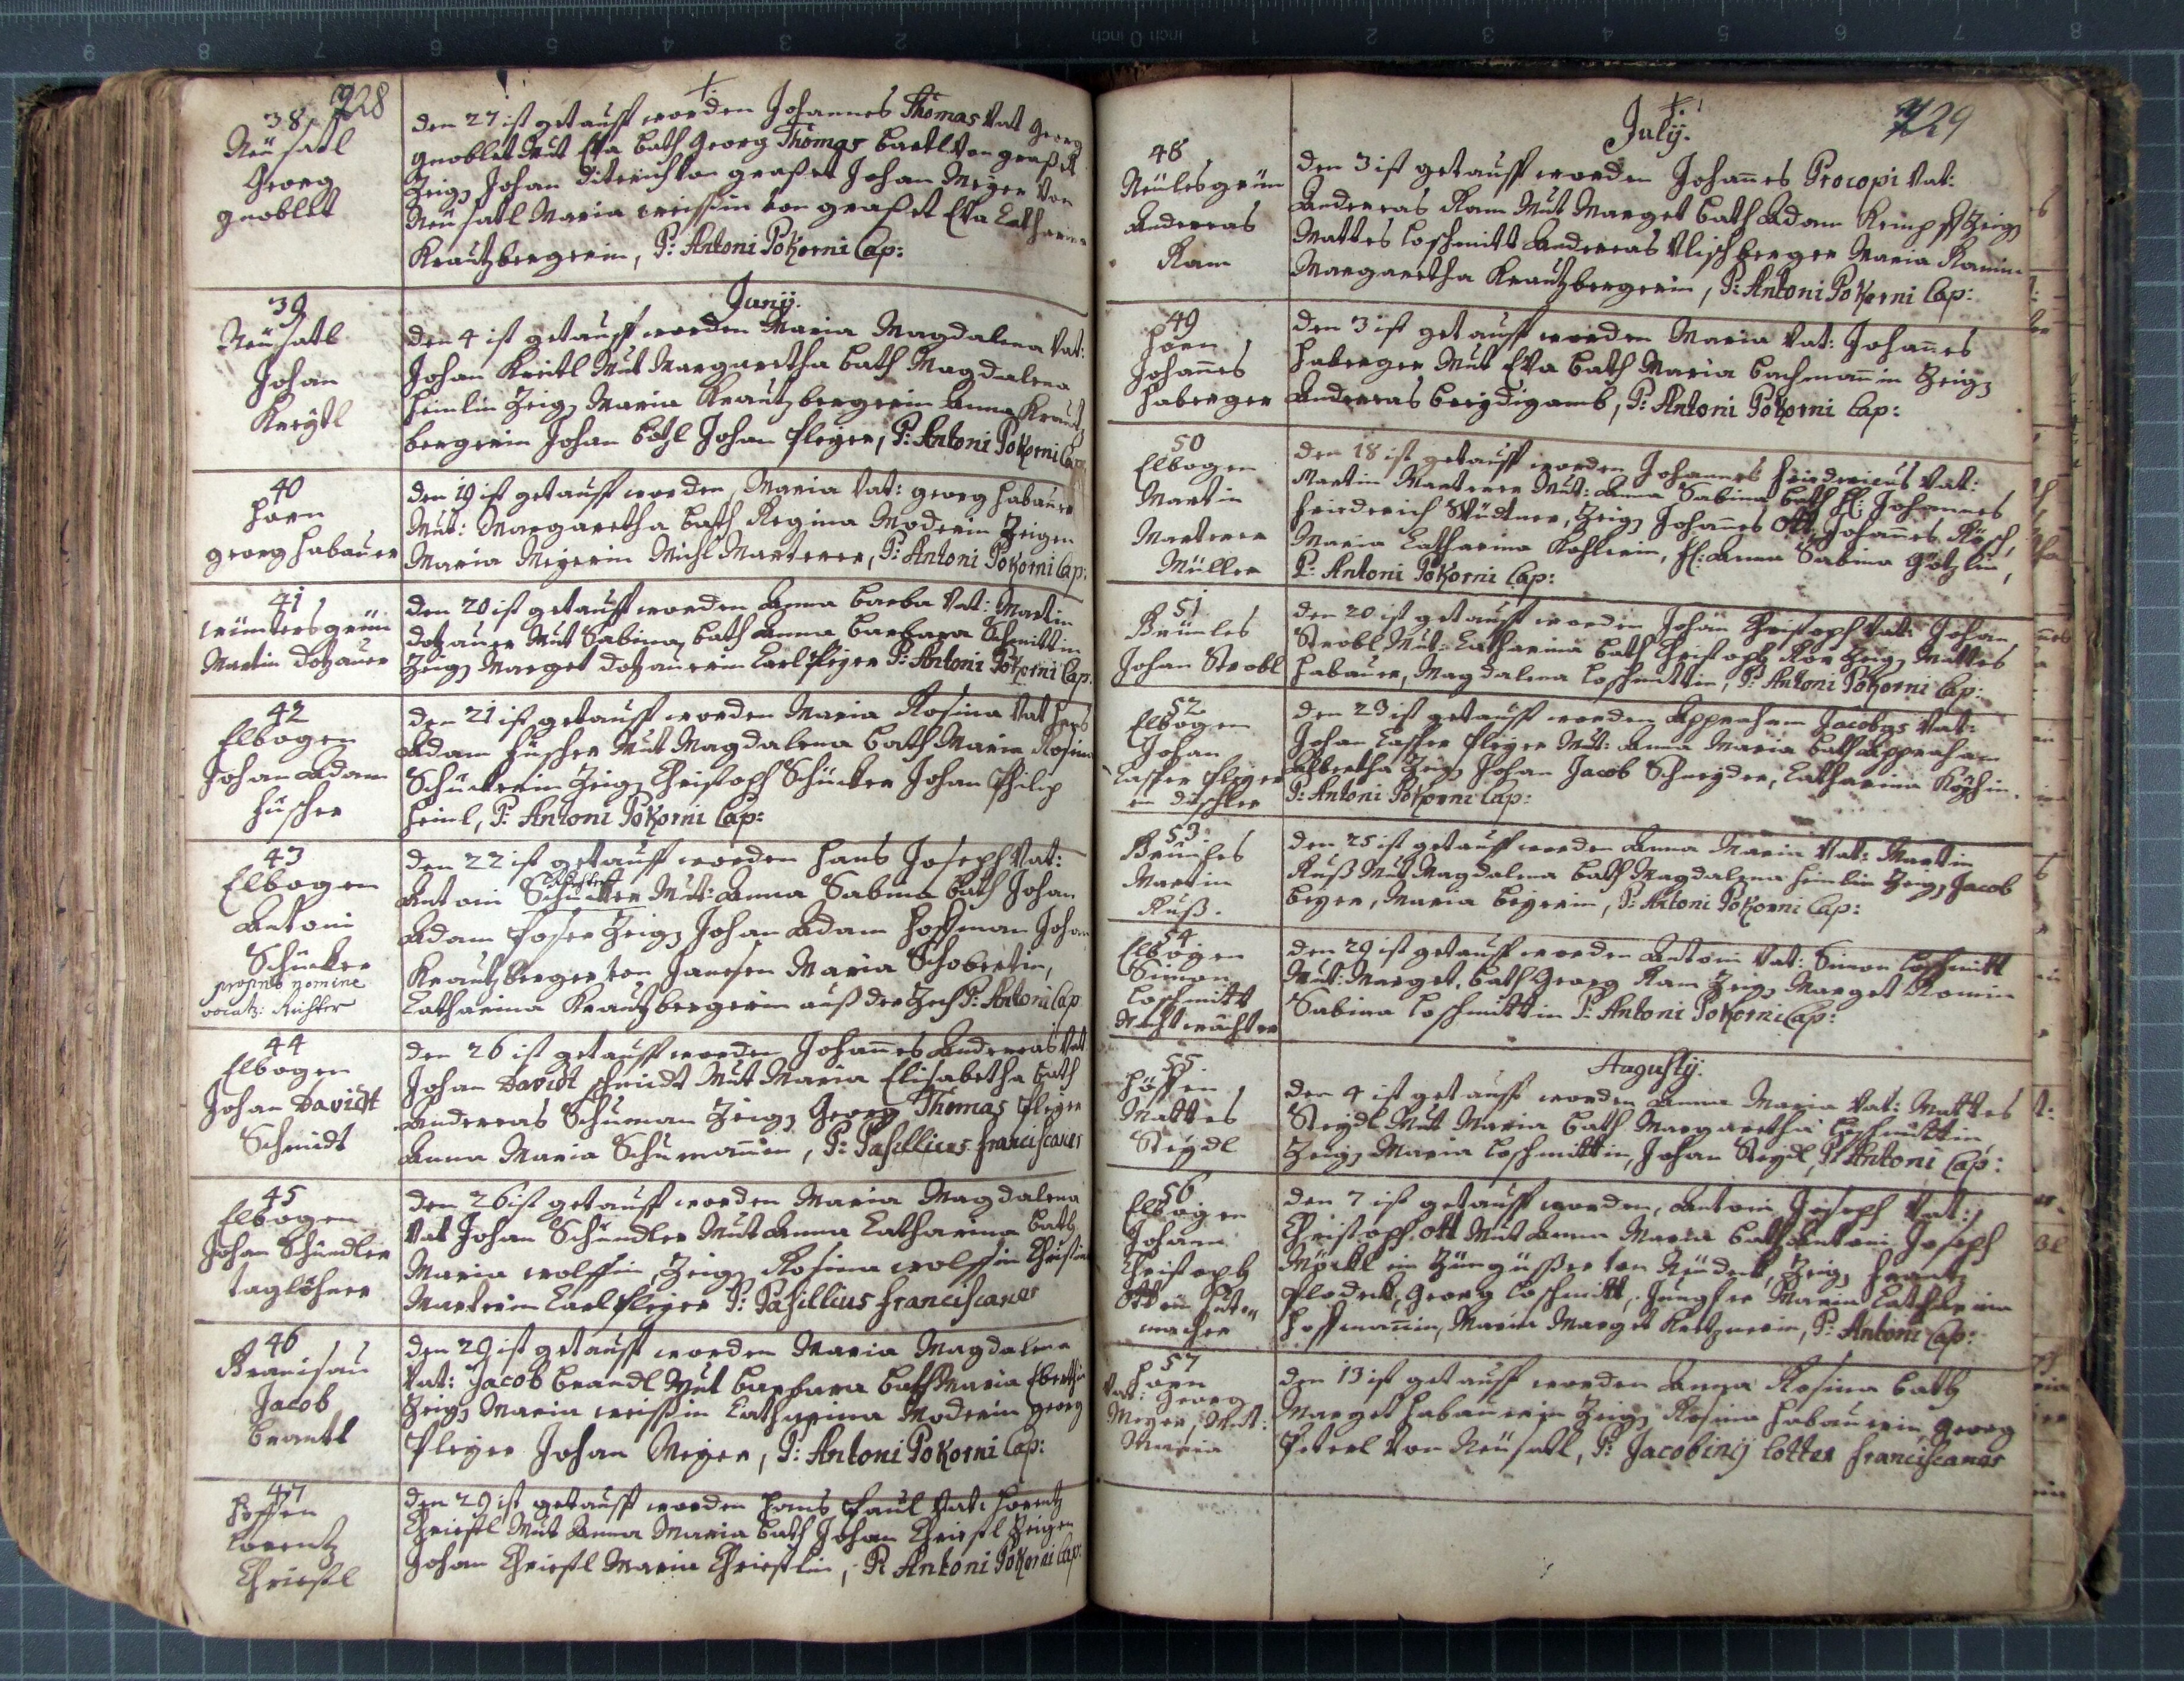 728
38
Neü satl
Georg
gnoblet
den 27 ist getaufft worden Johannes Thomas Vat Georg
gnoblet Mut Eva bath Georg Thomas bartl von graßet
Zeigs Johan Diterich von graßet Johan Meyer Von
Neü satl Maria weissin von graßet Eva Catharina
Krautzbergerin, P: Antoni Pokorni Cap:
Junÿ.
39
Neüsatl
Johan
Kreÿtl
den 4 ist getaufft worden Maria Magdalena Vat:
Johan Kreitl Mut Margaretha bath Magdalena
heimlin Zeigs Maria Krautzbergerin Anna Krautz
bergerin Johan Johan Pleyer, P: Antoni Pokorni Cap:
40
horn
georg habauer
den 19 ist getaufft worden, Maria Vat: georg habauer
Mut: Margaretha bath Regina Moderin Zeigen
Maria Meyerin Michl Marterer, P: Antoni Pokorni Cap:
41
wintersgrün
Martin Dotzauer
den 20 ist getaufft worden Anna barba Vat: Martin
Dotzauer Mut Sabina bath Anna barbara Schmittin
Zeigs Marget Dotzauerin Carl Pleyer P: Antoni Pokorni Cap.
42
Elbogen
Johan Adam
füscher
den 21 ist getaufft worden Maria Rosina Vat hans
Adam füscher Mut Magdalena bath Maria Rosina
Schückerin Zeigs Christoph Schücker Johan Philip
heinl, P: Antoni Pokorni Cap:
43
Elbogen
Antoni
Schücker
proprio nomine
vocatq: Richter
den 22 ist getaufft worden hans Joseph Vat:
Antoni Schücker Mut: Anna Sabina bath Johan
Adam Poser Zeigs Johan Adam hoffman Johan
Krautzberger von Janesen Maria Schobertin,
Catharina Krautzbergerin auß der Zech P: Antoni Cap
44
Elbogen
Johan Davidt
Schmidt
den 26 ist getaufft worden Johannes Andereas Vat
Johan Davidt schmidt Mut Maria Elisabetha bath
Andereas Schuman Zeigs Georg Thomas Pleyer
Anna Maria Schumanin, P: Pasillius franciscaner
45
Elbogen
Johan Schindler
taglöhner
den 26 ist getaufft worden Maria Magdalena
Vat Johan Schindler Mut Anna Catharina bath
Maria wolffin, Zeigs Rosina wolffin Christina
Marterin Carl Pleyer P: Pasillius franciscaner
46
Granisau
Jacob
brantl
den 29 ist getaufft worden Maria Magdalena
Vat: Jacob brandl Mut barbara bath Maria Ebertin
Zeigs Maria weissin Catharina Moderin georg
Pleyer Johan Meyer, P: Antoni Pokorni Cap:
47
hoffen
Lorentz
Christl
den 29 ist getaufft worden hans Paul Vat: Lorentz
Christl Mut Anna Maria bath Johan Christl Zeigen
Johan Christl Maria Christlin, P: Antoni Pokorni Cap:
729
Julÿ.
48
Neülesgrün
Andereas
Ram
den 3 ist getaufft worden Johanes Procopi Vat:
Andereas Ram Mut Marget bath Adam Kempff Zeigs
Mattes loschmitt Andereas Ulischberger Maria Ramin
Margaretha Krautzbergerin, P: Antoni Pokorni Cap:
49
horn
Johanes
haberger
den 3 ist getaufft worden Maria Vat: Johanes
haberger Mut Eva bath Maria bachmanin Zeigs
Andereas breydigamb, P: Antoni Pokorni Cap:
50
Elbogen
Martin
Marterer
Müller
den 18 ist getaufft worden Johannes friedericus Vat:
Martin Marterer Mut: Anna Sabina bath H: Johannes
friederich Wüdtner, Zeigs Johanes Ott, Johanes Rösch,
Maria Catharina Kohlerin, H: Anna Sabina Götzlin,
P: Antoni Pokorni Cap:
51
Grünles
Johan Strobl
den 20 ist getaufft worden Johan Christoph Vat: Johan
Strobl Mut: Catharina bath Christoph Zeigs Mattes
habauer, Magdalena loschmittin, P: Antoni Pokorni Cap:
52
Elbogen
Johan
Casper Pleyer
ein düschler
den 23 ist getaufft worden Appraham Jacobqs Vat:
Johan Casper Pleyer Mut: Anna Maria bath Appraham
Albertha Zeigs Johan Jacob Schneyder, Catharina Köhin.
P: Antoni Pokorni Cap:
53
Grünles
Martin
Ruß.
den 25 ist getaufft worden Anna Maria Vat: Martin
Ruß Mut Magdalena bath Magdalena heimlin Zeigs Jacob
beyer, Maria beyerin, P: Antoni Pokorni Cap:
54
Elbogen
Simon
loschmitt
Nachtwächter
den 29 ist getaufft worden Antoni Vat: Simon loschmitt
Mut: Marget, bath Georg Ram Zeigs Marget Ramin
Sabina loschmittin P: Antoni Pokorni Cap:
Augustÿ.
55
höffen
Mattes
Steydl
den 4 ist getaufft worden Anna Maria Vat: Mattes
Steydl Mut Maria bath Margaretha loschmittin
Zeigs Maria loschmittin, Johan Steydl, P: Antoni Cap:
56
Elbogen
Johann
Christoph
Ott ein hut=
macher
den 7 ist getaufft worden, Antoni Joseph Vat:
Christoff Ott Mut Anna Maria bath Antoni Joseph
Möckl ein Züngüßer von Neüdek, Zeigs frantz
Plodeck, Georg loschmitt, Jungfer Maria Catharina
hoffmanin, Maria Marget Kretznerin, P: Antoni Cap:
57
horn
Vat: Georg
Meyer, Mut:
Maria
den 13 ist getaufft worden Anna Rosina bath
Marget habauerin Zeigs Rosina habauerin, Georg
Peterl Von Neüsatl, P: Jacobinÿ Cotter franciscaner